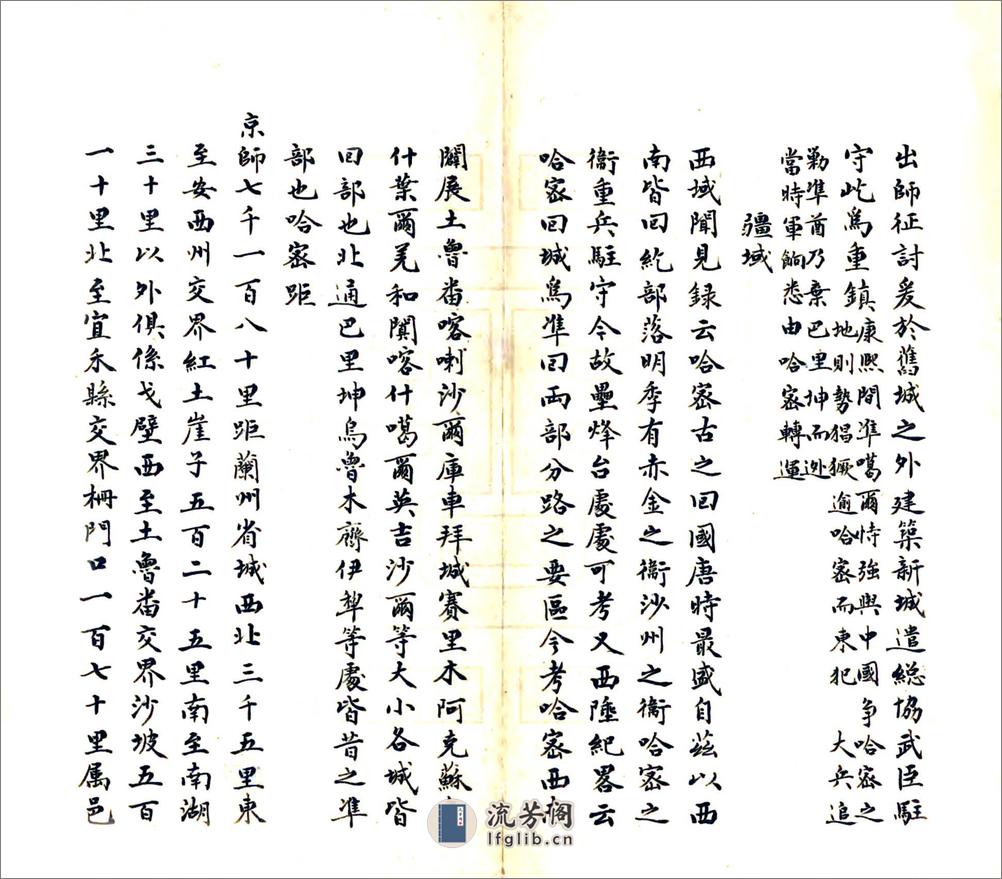 出師征討爰於舊城之外建築新城遣總協武臣駐
守此為重鎮
康熙間準噶爾恃強與中國爭哈密之
地則勢猖獗逾哈密而東犯 大兵追
勦準酋乃棄巴里坤而遁
當時軍餉悉由哈密轉運
疆域
西域聞見録云哈密古之回國唐時最盛自茲以西
南皆回紇部落明季有赤金之衞沙州之衞哈密之
衞重兵駐守今故壘烽台處處可考又西陲紀畧云
哈密回城為準回兩部分路之要區今考哈密西
闢展土魯番喀喇沙爾庫車拜城賽里木阿克蘇
什葉爾羌和闐喀什噶爾英吉沙爾等大小各城皆
回部也北通巴里坤烏魯木齊伊犁等處皆昔之準
部也哈密距
京師七千一百八十里距蘭州省城西北三千五里東
至安西州交界紅土崖子五百二十五里南至南湖
三十里以外俱係戈壁西至土魯番交界沙坡五百
一十里北至宜禾縣交界柵門口一百七十里属邑
流芳阁
lfglib.cn